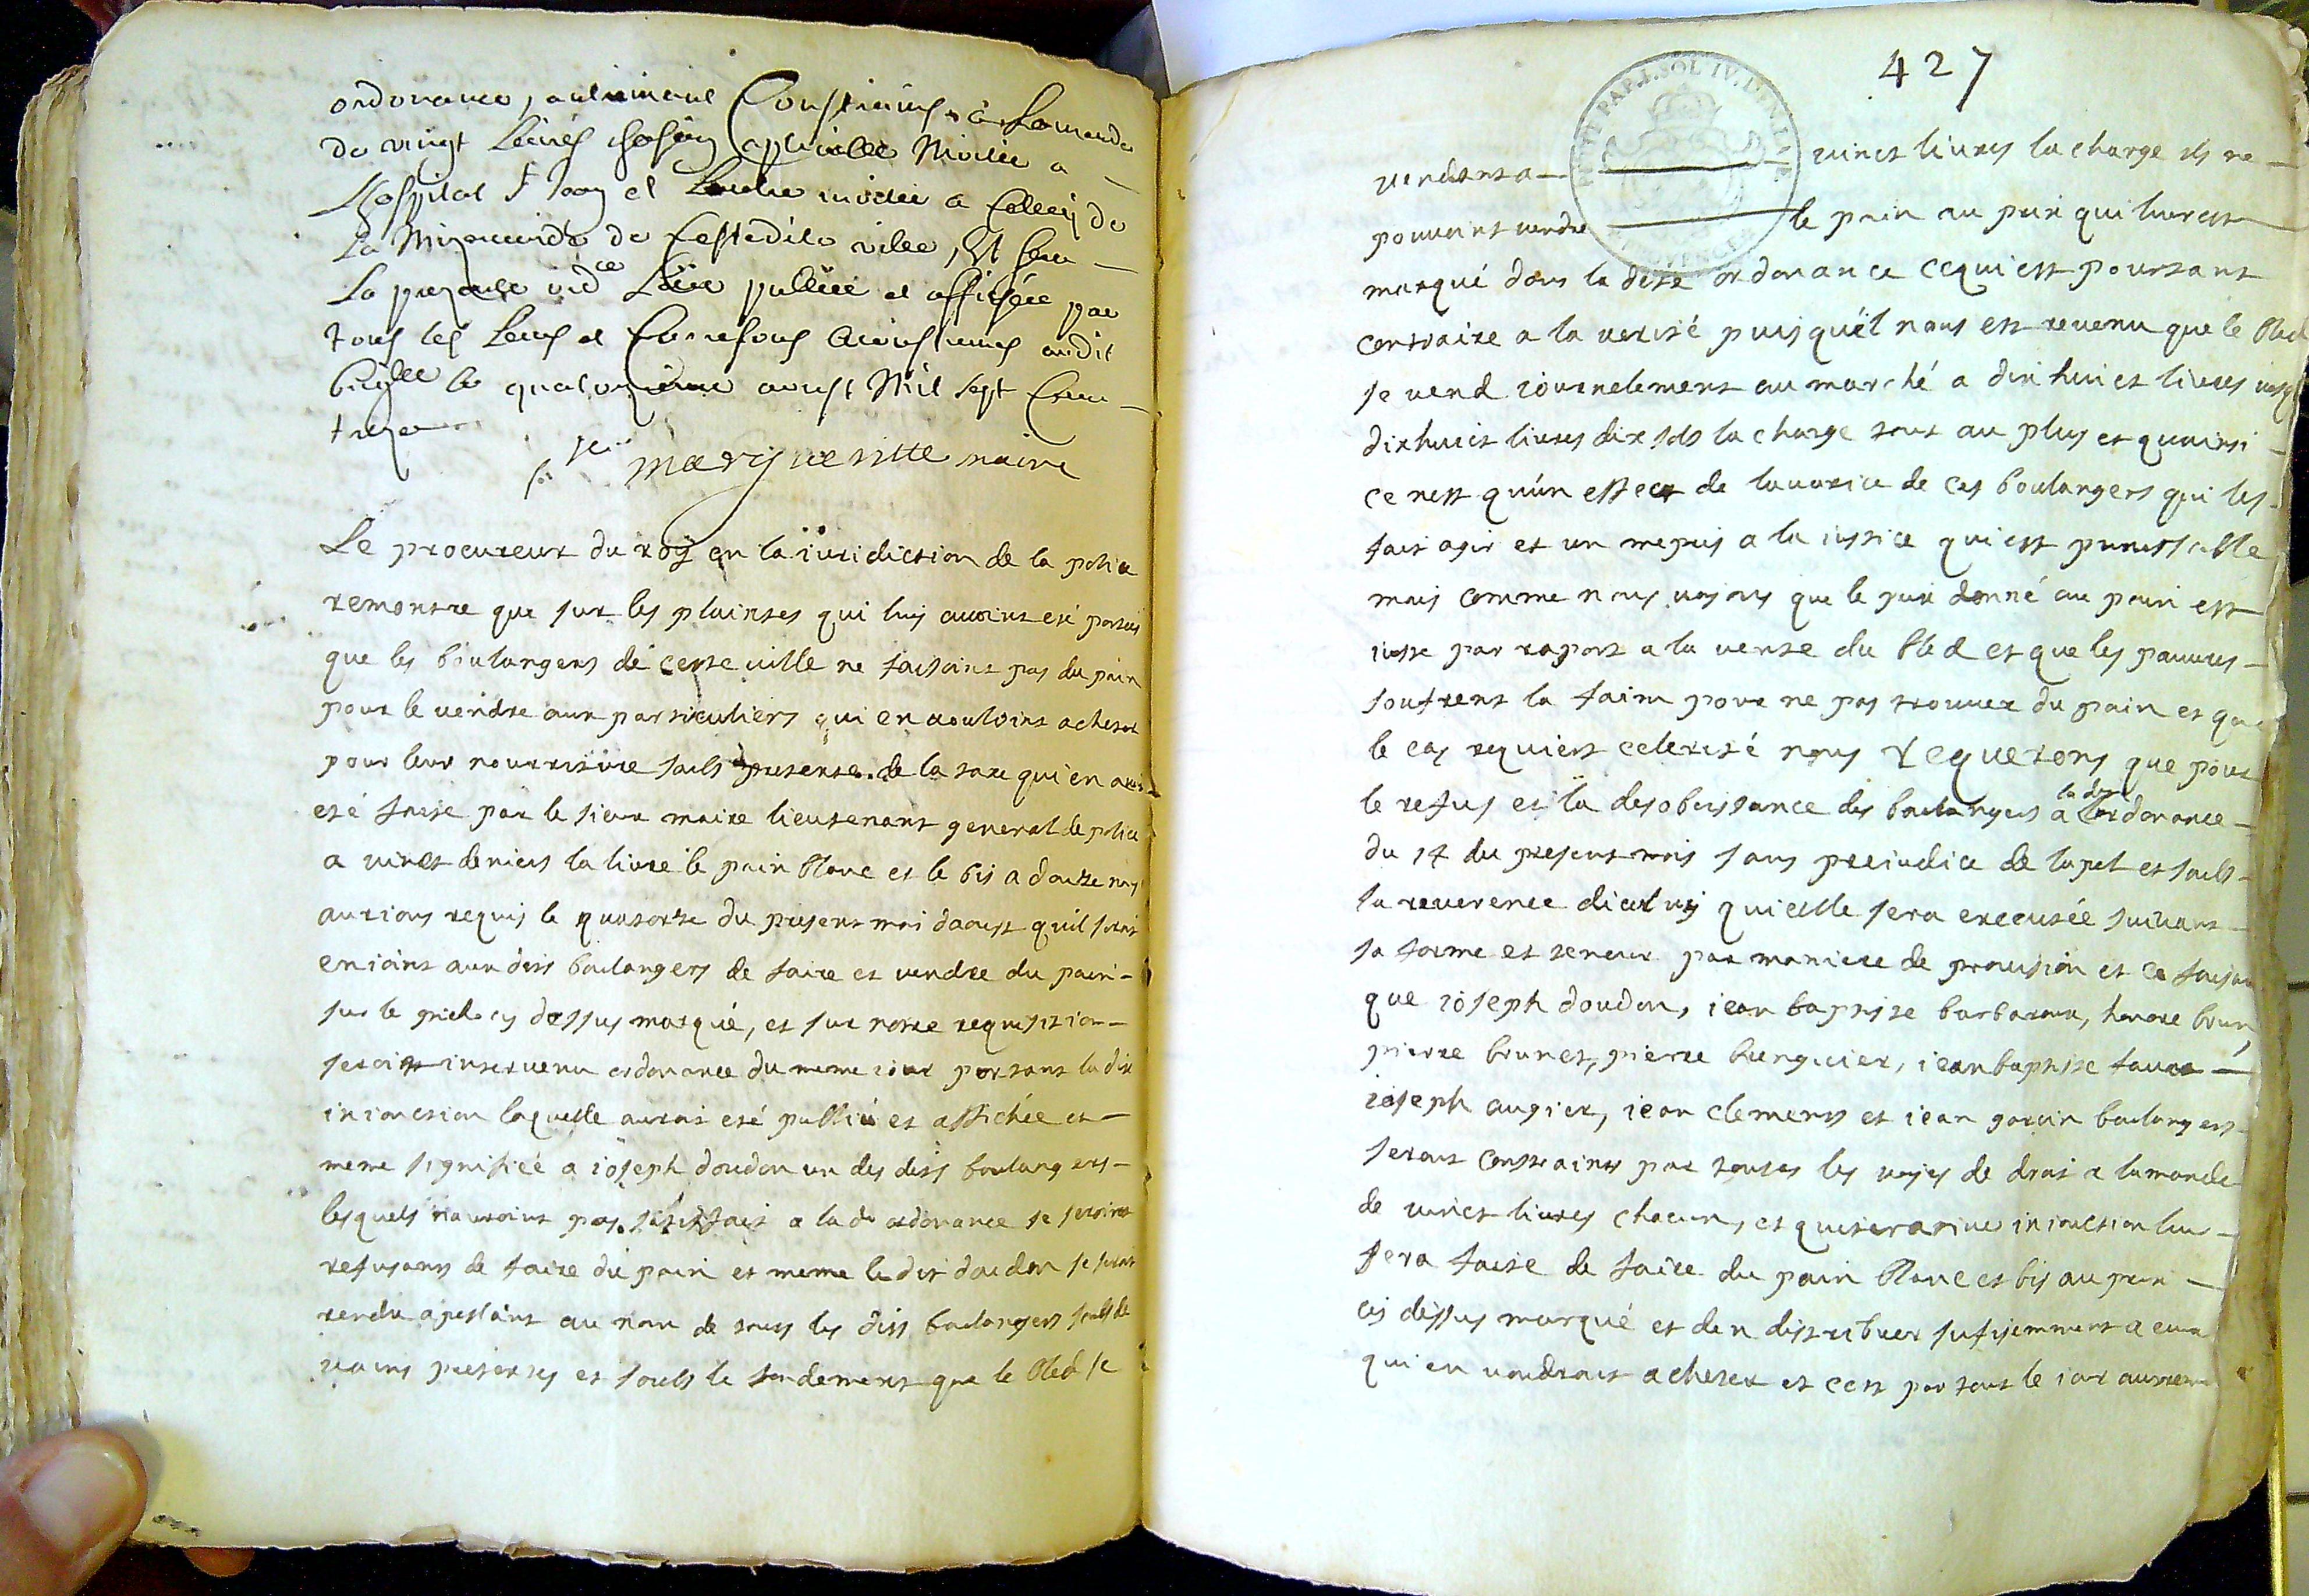 ordonance, autrement Constrains à Lamande
de vingt Livres chascun applicable Moitié a
Lhospital St Jacq et Lautre moitié a Celluy de
La Misericorde de Cestedite ville, Et sera
La presente ordce Leüe publiée et affichée par
tous les Lieux et Carrefours Acoustumés audit
le quatorzieme aoust Mil sept Cens
treze
maire
Le procureur du roy en la iuridiction de la police
remonstre que sur les plaintes qui luy auoint esté portées
que les boulangers de cette uille ne faisoint pas du pain
pour le uendre aux particuliers qui en uouloint acheter
pour leur nourriture soubs pretexte de la taxe qui en auoit
esté faite par le sieur maire lieutenant general de police
a uinct deniers la liure le pain blanc et le bis a douze nous
aurions requis le quatorze du present mois daoust quil serait
enioint aux dits boulangers de faire et uendre du pain
sur le pied cy dessus marqué, et sur notre requisition
seroit interuenu ordonance du meme iour portant la dite
inionction laquelle aurait esté publiée et affichée et
meme signifiée a ioseph doudon un des dits boulangers
lesquels nauroint pas satisfait a la de ordonance se seroint
refusans de faire du pain et meme le dit doudon se serait
rendu apellant au nom de tous les dits boulangers soubs de
uains pretextes et soubs le fondement que le bled se
427
vendant a uinct liures la charge ils ne
pouuoint uendre le pain au prix qui leur est
marqué dans la dite ordonance ce qui est pourtant
contraire a la uerité puis quil nous est reuenu que le bled
se uend iournelement au marché a dix huict liures
dixhuict liures dix sols la charge tout au plus et quainsi
ce nest quun effect de lauarice de ces boulangers qui les
fait agir et un mepris a la iustice qui est punissable
mais comme nous uoyons que le prix donné au pain est
iuste par raport a la uente du bled et que les pauures
soufrent la faim pour ne pas trouuer du pain et que
le cas requiert celerité nous requerons que pour
le refus et la desobeissance des boulangers a la dite ordonance
du 14 du present mois sans preiudice de lapel et soubs
la reuerence diceluy quielle sera executée suiuant
sa forme et teneur par maniere de prouision et ce faisant
que ioseph doudon, iean baptiste barbaroux, honoré brun,
pierre brunet, pierre bunguier, iean baptiste faure
ioseph augier, iean clemens et iean garcin boulangers
seront constraints par toutes les uoyes de droit a lamande
de uinct liures chacun, et quiterative inionction leur
sera faite de faire du pain blanc et bis au prix
cy dessus marqué et den distribuer sufisemment a ceux
qui en uoudront acheter et cest par tout le iour autrement